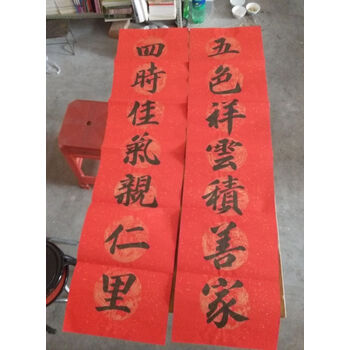 五色祥雲積善家
四時佳氣親仁里